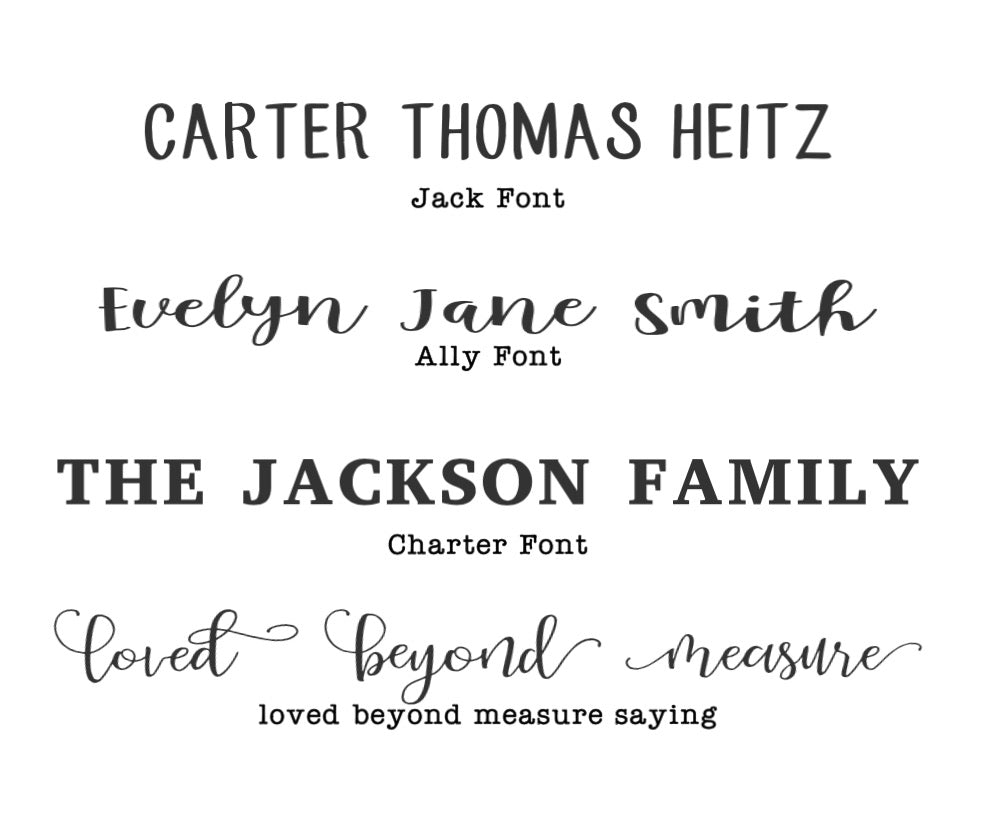 CARTER THOMAS HEITZ
Jack Font
Evelyn Jane Smith
Ally Font
THE JACKSON FAMILY
Charter Font
loved beyond measure
loved beyond measure saying